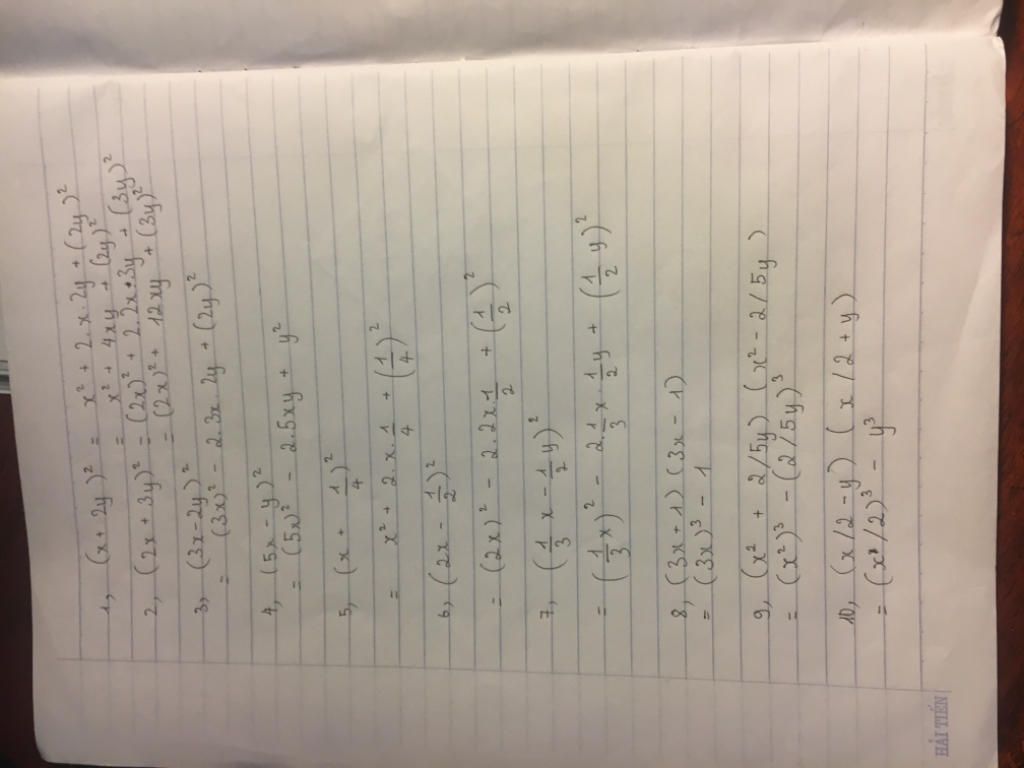 1, (x + 2y)² = x² + 2.x.2y + (2y)²
= x² + 4xy + (2y)²
2, (2x + 3y)² = (2x)² + 2.2x.3y + (3y)²
= (2x)² + 12xy + (3y)²
3, (3x - 2y)²
= (3x)² - 2.3x.2y + (2y)²
4, (5x - y)²
= (5x)² - 2.5xy + y²
5, (x + 1/4)²
= x² + 2.x.1/4 + (1/4)²
6, (2x - 1/2)²
= (2x)² - 2.2x.1/2 + (1/2)²
7, (1/3 x - 1/2 y)²
= (1/3 x)² - 2.1/3 x.1/2 y + (1/2 y)²
8, (3x + 1) (3x - 1)
= (3x)³ - 1
9, (x² + 2/5y) (x² - 2/5y)
= (x²)³ - (2/5y)³
10, (x/2 - y) (x/2 + y)
= (x/2)³ - y³
HẢI TIẾN